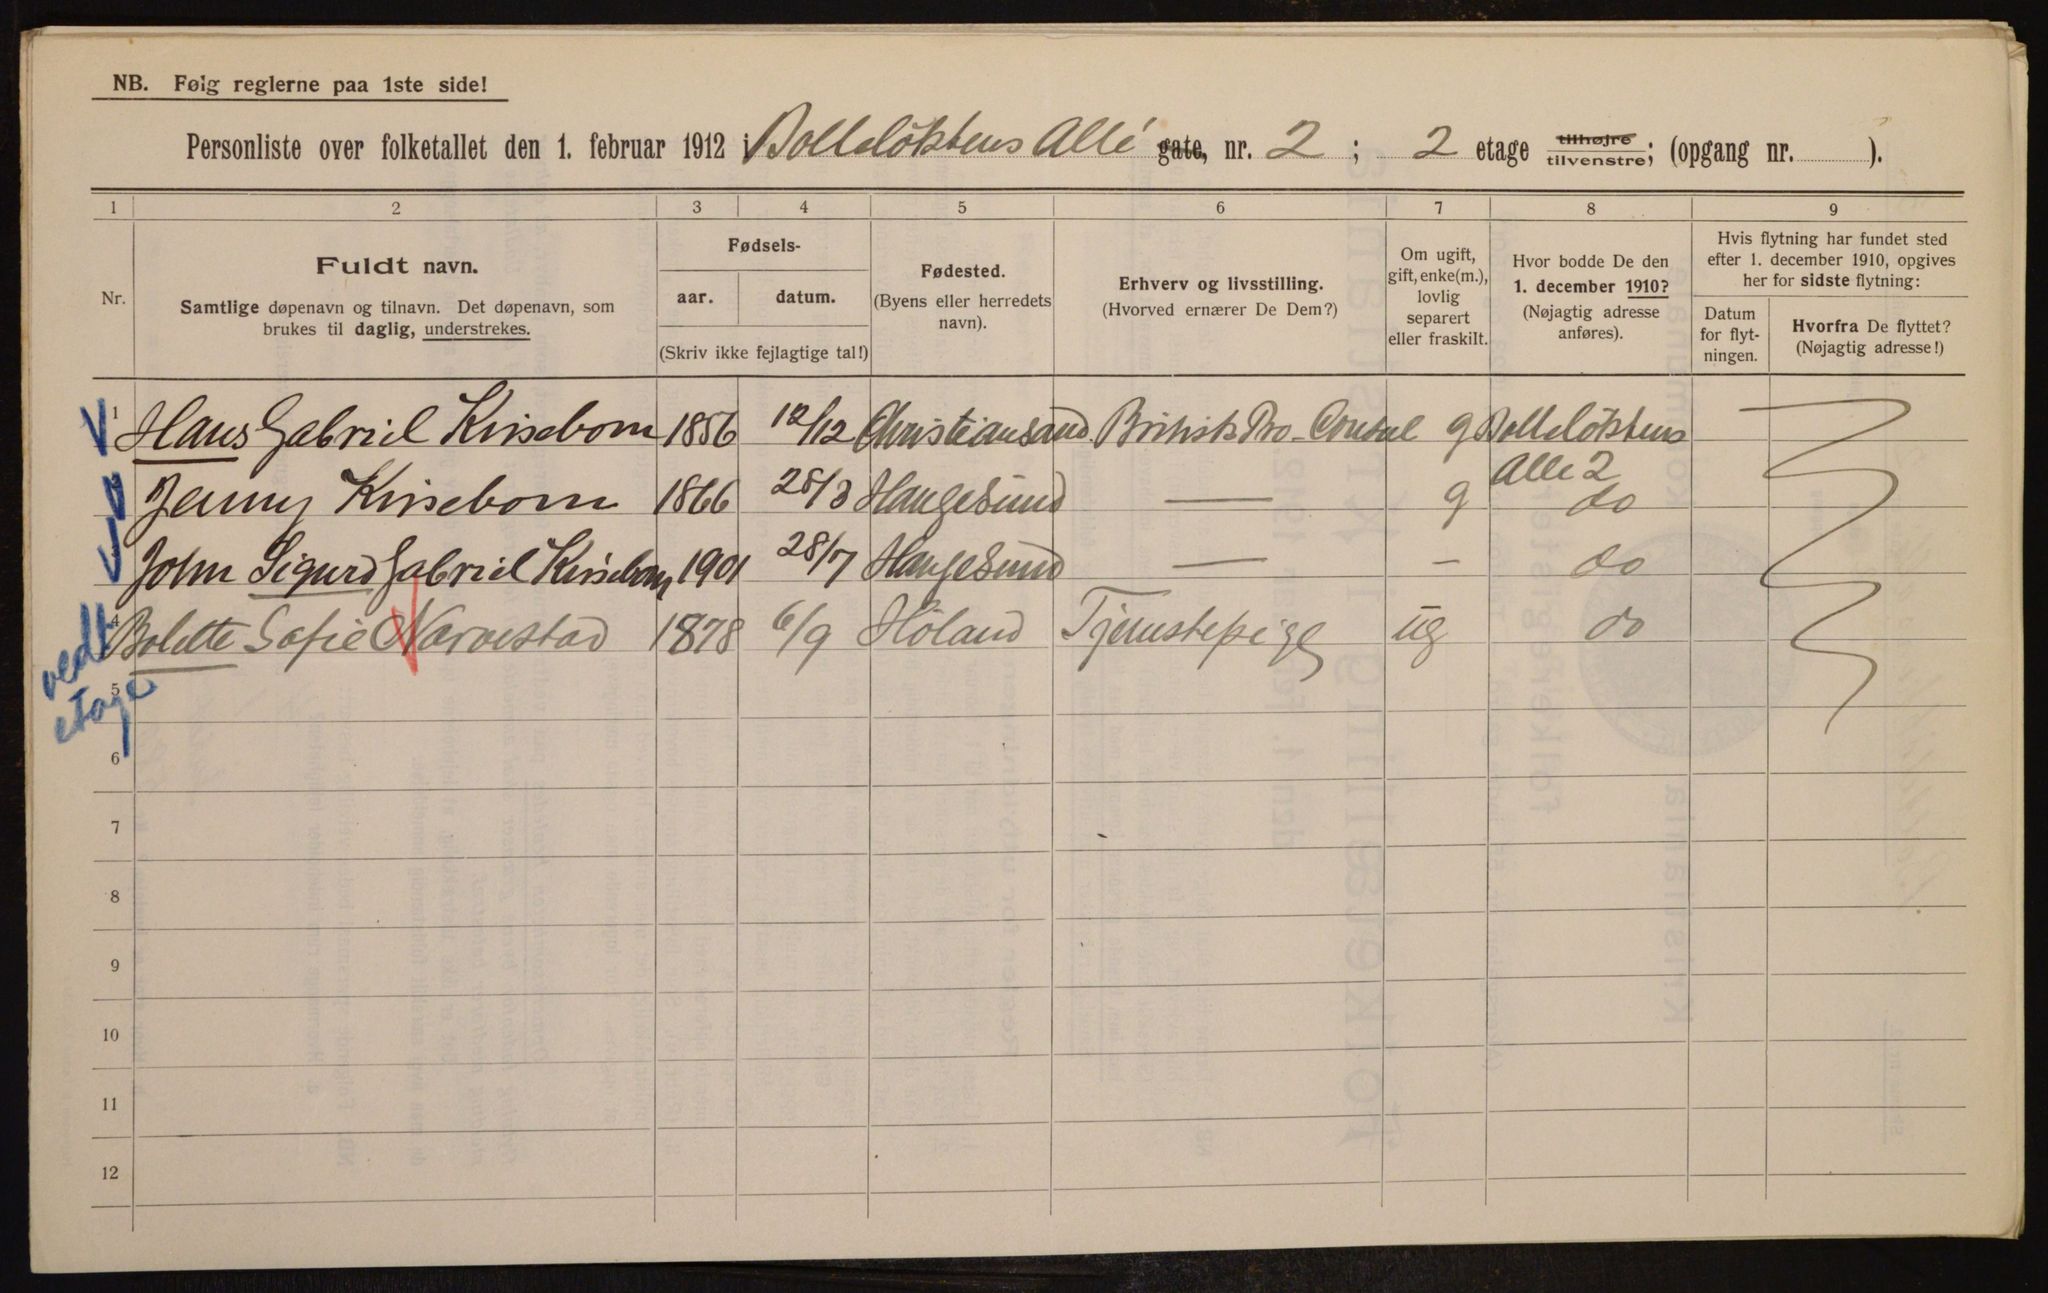 NB. Følg reglerne paa 1ste side!
Personliste over folketallet den 1. februar 1912 i Bolteløkkens Allé gate, nr. 2 ; 2 etage tilhøjre tilvenstre; (opgang nr. ).
1 2 3 4 5 6 7 8 9
Nr.
Fuldt navn.
Samtlige døpenavn og tilnavn. Det døpenavn, som
brukes til daglig, understrekes.
Fødsels-
aar. datum.
(Skriv ikke fejlagtige tal!)
Fødested.
(Byens eller herredets
navn).
Erhverv og livsstilling.
(Hvorved ernærer De Dem?)
Om ugift,
gift, enke(m.),
lovlig
separert
eller fraskilt.
Hvor bodde De den
1. december 1910?
(Nøjagtig adresse
anføres).
Hvis flytning har fundet sted
efter 1. december 1910, opgives
her for sidste flytning:
Datum
for flyt-
ningen.
Hvorfra De flyttet?
(Nøjagtig adresse!)
1 Hans Gabriel Kirsebom 1856 12/12 Christiansand British Pro-Consul g Bolteløkkens
Alle 2
Jenny Kirsebom 1866 28/3 Haugesund — g do
John Sigurd Gabriel Kirsebom 1901 28/7 Haugesund — – do
4 Bolette Sofie Narvestad 1878 6/9 Høland Tjenestepige ug do
vedt
etage
5
6
7
8
9
10
11
12